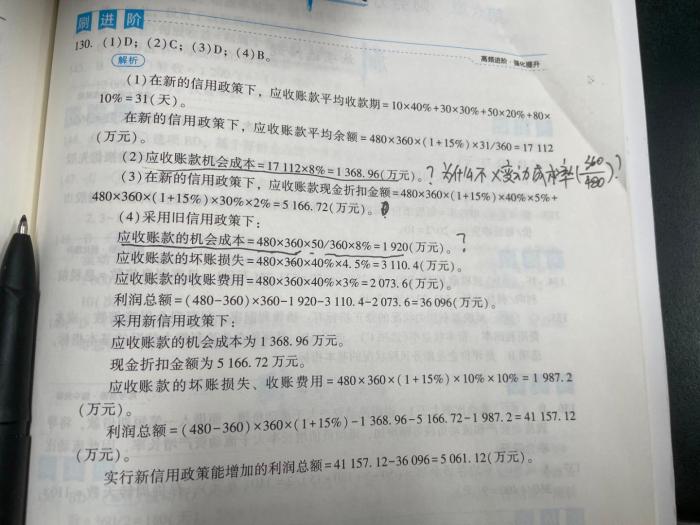 刷 进 阶
高频进阶 强化提升
130. (1)D；(2)C；(3)D；(4)B。
解析
(1)在新的信用政策下，应收账款平均收款期=10×40%+30×30%+50×20%+80×
10%=31(天)。
在新的信用政策下，应收账款平均余额=480×360×(1+15%)×31/360=17 112
(万元)。
(2)应收账款机会成本=17 112×8%=1 368.96(万元)。？为什么不×变动成本率(360/480)？
(3)在新的信用政策下，应收账款现金折扣金额=480×360×(1+15%)×40%×5%+
480×360×(1+15%)×30%×2%=5 166.72(万元)。
(4)采用旧信用政策下：
应收账款的机会成本=480×360×50/360×8%=1 920(万元)。？
应收账款的坏账损失=480×360×40%×4.5%=3 110.4(万元)。
应收账款的收账费用=480×360×40%×3%=2 073.6(万元)。
利润总额=(480-360)×360-1 920-3 110.4-2 073.6=36 096(万元)。
采用新信用政策下：
应收账款的机会成本为1 368.96万元。
现金折扣金额为5 166.72万元。
应收账款的坏账损失、收账费用=480×360×(1+15%)×10%×10%=1 987.2
(万元)。
利润总额=(480-360)×360×(1+15%)-1 368.96-5 166.72-1 987.2=41 157.12
(万元)。
实行新信用政策能增加的利润总额=41 157.12-36 096=5 061.12(万元)。